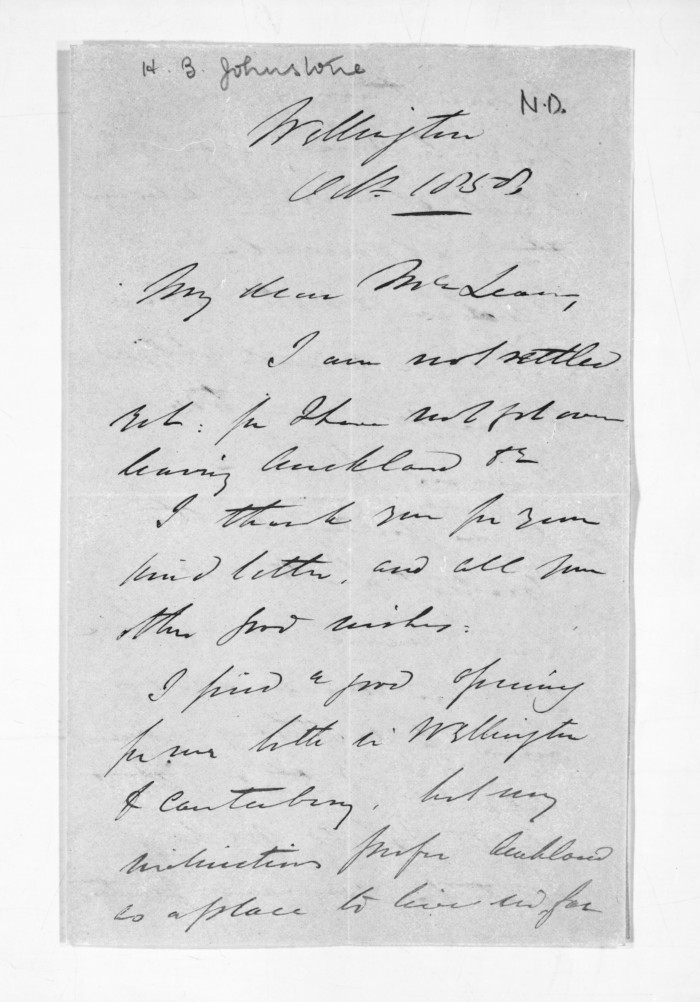 H. B. Johnstone
N.D.
Wellington
Oct 1858
My dear McLean,
I am not settled
yet: for I have not got over
leaving Auckland &c
I thank you for your
kind letter, and all your
other good wishes.
I find a good opening
for me both in Wellington
& Canterbury, but my
inclinations prefer Auckland
as a place to live in, for